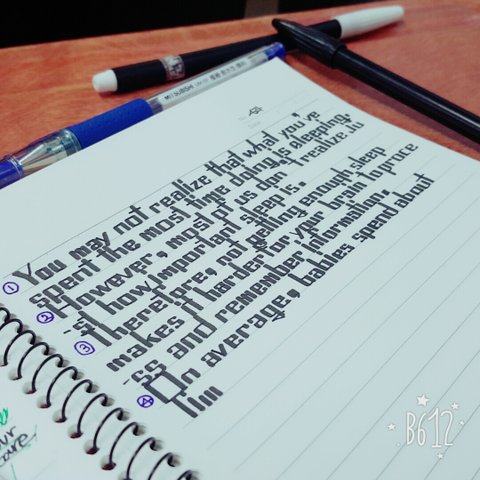 MITSUBISHI
① You may not realize that what you've
spent the most time doing is sleeping.
② However, most of us don't realize.ju
-st how important sleep is.
③ Therefore, not getting enough sleep
makes it harder for your brain to proce
-ss and remember information.
④ On average, babies spend about
B612